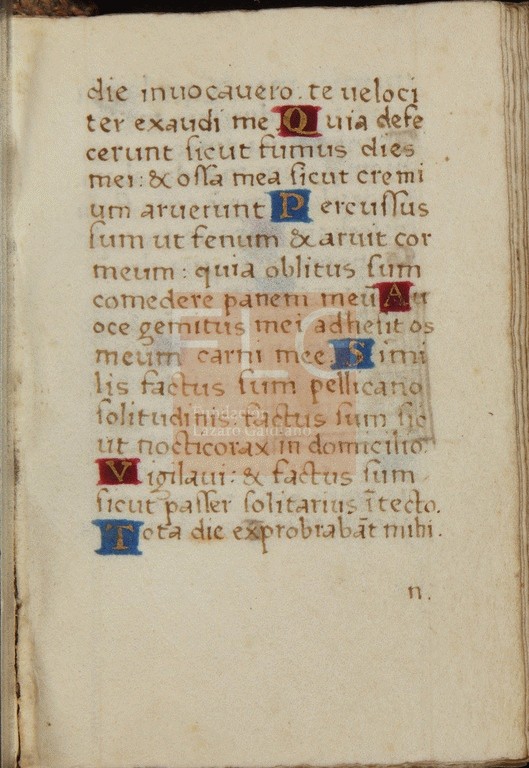 die invocavero te veloci
ter exaudi me Quia defe
cerunt sicut fumus dies
mei: & ossa mea sicut cremi
um aruerunt Percussus
sum ut fenum & aruit cor
meum: quia oblitus sum
comedere panem meū A u
oce gemitus mei adhesit os
meum carni mee. Simi
lis factus sum pellicano
solitudinis: factus sum sic
ut nocticorax in domicilio.
Vigilavi: & factus sum
sicut passer solitarius ī tecto.
Tota die exprobrabāt mihi.
n.
FLG
Fundación
Lázaro Galdiano